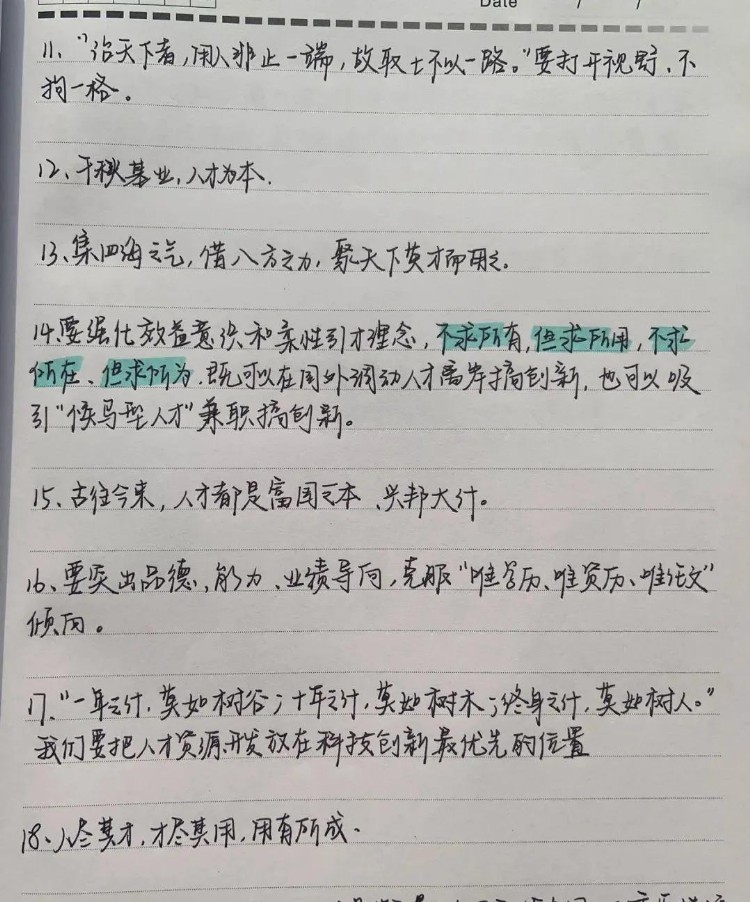 Date / /
11、"治天下者，用人非止一端，故取士不以一路。"要打开视野、不
拘一格。
12、千秋基业，人才为本.
13、集四海之气，借八方之力，聚天下英才而用之。
14、要强化效益意识和柔性引才理念，不求所有，但求所用，不求
所在、但求所为，既可以在国外调动人才离岸搞创新，也可以吸
引"候鸟型人才"兼职搞创新。
15、古往今来，人才都是富国之本、兴邦大计。
16、要突出品德、能力、业绩导向，克服"唯学历、唯资历、唯论文"
倾向。
17、"一年之计，莫如树谷；十年之计，莫如树木；终身之计，莫如树人。"
我们要把人才资源开发放在科技创新最优先的位置
18、人尽其才，才尽其用，用有所成.